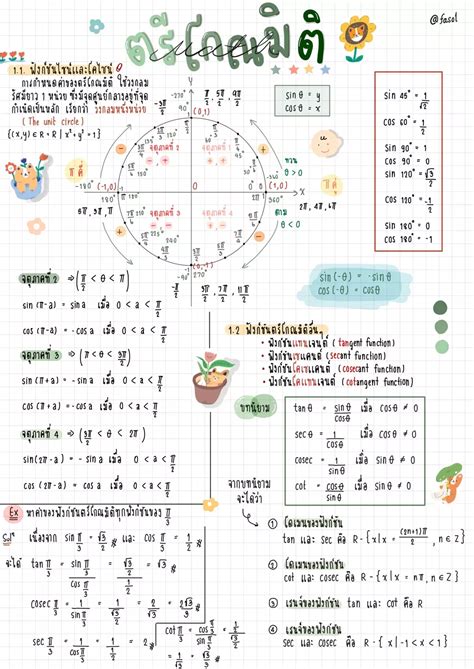 ตรีโกณมิติ
math
@fasol
1.1. ฟังก์ชันไซน์และโคไซน์
การกำหนดค่าของตรีโกณมิติ ใช้วงกลม
รัศมียาว 1 หน่วย ซึ่งจุดศูนย์กลางอยู่ที่จุด
กำเนิดเป็นหลัก เรียกว่า วงกลมหนึ่งหน่วย
(The unit circle)
{(x,y) ∈ R × R | x² + y² = 1}
Y
(0,1)
sin θ = y
cos θ = x
จตุภาคที่ 2
จตุภาคที่ 1
ทวน
θ > 0
-180°
(-1,0)
180°
0
(1,0)
360°
X
ตาม
θ < 0
π, 3π, 5π
2π, 4π, 6π
จตุภาคที่ 3
จตุภาคที่ 4
(0,-1)
sin 45° = 1/√2
cos 60° = 1/2
sin 90° = 1
cos 90° = 0
sin 180° = 0
cos 180° = -1
sin(-θ) = -sinθ
cos(-θ) = cosθ
จตุภาคที่ 2 ⇒ (π/2 < θ < π)
sin (π-a) = sin a เมื่อ 0 < a < π/2
cos (π-a) = -cos a เมื่อ 0 < a < π/2
จตุภาคที่ 3 ⇒ (π < θ < 3π/2)
sin(π+a) = -sin a เมื่อ 0 < a < π/2
cos(π+a) = -cos a เมื่อ 0 < a < π/2
จตุภาคที่ 4 ⇒ (3π/2 < θ < 2π)
sin(2π-a) = -sin a เมื่อ 0 < a < π/2
cos (2π-a) = cos a เมื่อ 0 < a < π/2
1.2 ฟังก์ชันตรีโกณมิติอื่นๆ
• ฟังก์ชันแทนเจนต์ (tangent function)
• ฟังก์ชันเซแคนต์ (secant function)
• ฟังก์ชันโคเซแคนต์ (cosecant function)
• ฟังก์ชันโคแทนเจนต์ (cotangent function)
บทนิยาม
tan θ = sinθ/cosθ เมื่อ cosθ ≠ 0
sec θ = 1/cosθ เมื่อ cosθ ≠ 0
cosec = 1/sinθ เมื่อ sin θ ≠ 0
cot = cosθ/sinθ เมื่อ sinθ ≠ 0
จากบทนิยาม
จะได้ว่า
① โดเมนของฟังก์ชัน
tan และ sec คือ R - {x | x = (2n+1)π/2, n ∈ Z}
② โดเมนของฟังก์ชัน
cot และ cosec คือ R - {x | x = nπ, n ∈ Z}
③ เรนจ์ของฟังก์ชัน tan และ cot คือ R
④ เรนจ์ของฟังก์ชัน
sec และ cosec คือ R - {x | -1 < x < 1}
Ex หาค่าของฟังก์ชันตรีโกณมิติทุกฟังก์ชันของ π/3
Solⁿ เนื่องจาก sin π/3 = √3/2 และ cos π/3 = 1/2
จะได้ tan π/3 = sin π/3 / cos π/3 = √3/2 / 1/2 = √3
cosec π/3 = 1/sin π/3 = 1/√3/2 = 2/√3 = 2√3/3
sec π/3 = 1/cos π/3 = 1/1/2 = 2
cot π/3 = cos π/3 / sin π/3 = 1/2 / √3/2 = 1/√3 = √3/3